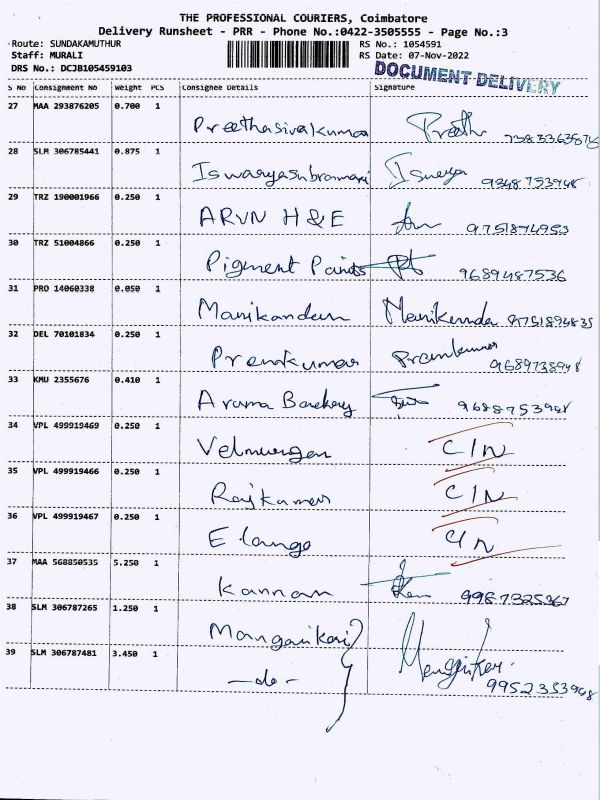 THE PROFESSIONAL COURIERS, Coimbatore
Delivery Runsheet - PRR - Phone No.:0422-3505555 - Page No.:3
Route: SUNDAKAMUTHUR RS No.: 1054591
Staff: MURALI RS Date: 07-Nov-2022
DRS No.: DCJB105459103 DOCUMENT DELIVERY
S No Consignment No Weight PCS Consignee Details Signature
27 MAA 293876205 0.700 1
Preethasivakumar Preeth
28 SLM 306785441 0.875 1
9348753948
29 TRZ 190001966 0.250 1
ARUN H&E 9751874953
30 TRZ 51004866 0.250 1
Pigment Paints 9689487536
31 PRO 14060338 0.050 1
Manikandan 9751894835
32 DEL 70101834 0.250 1
Premkumar Premkumar 9689738948
33 KMU 2355676 0.410 1
9688753948
34 VPL 499919469 0.250 1
Velmurugan C/N
35 VPL 499919466 0.250 1
Rajkamar C/N
36 VPL 499919467 0.250 1
Elango C/N
37 MAA 568850535 5.250 1
Kannan 9987325367
38 SLM 306787265 1.250 1
39 SLM 306787481 3.450 1
-do- 9952353948